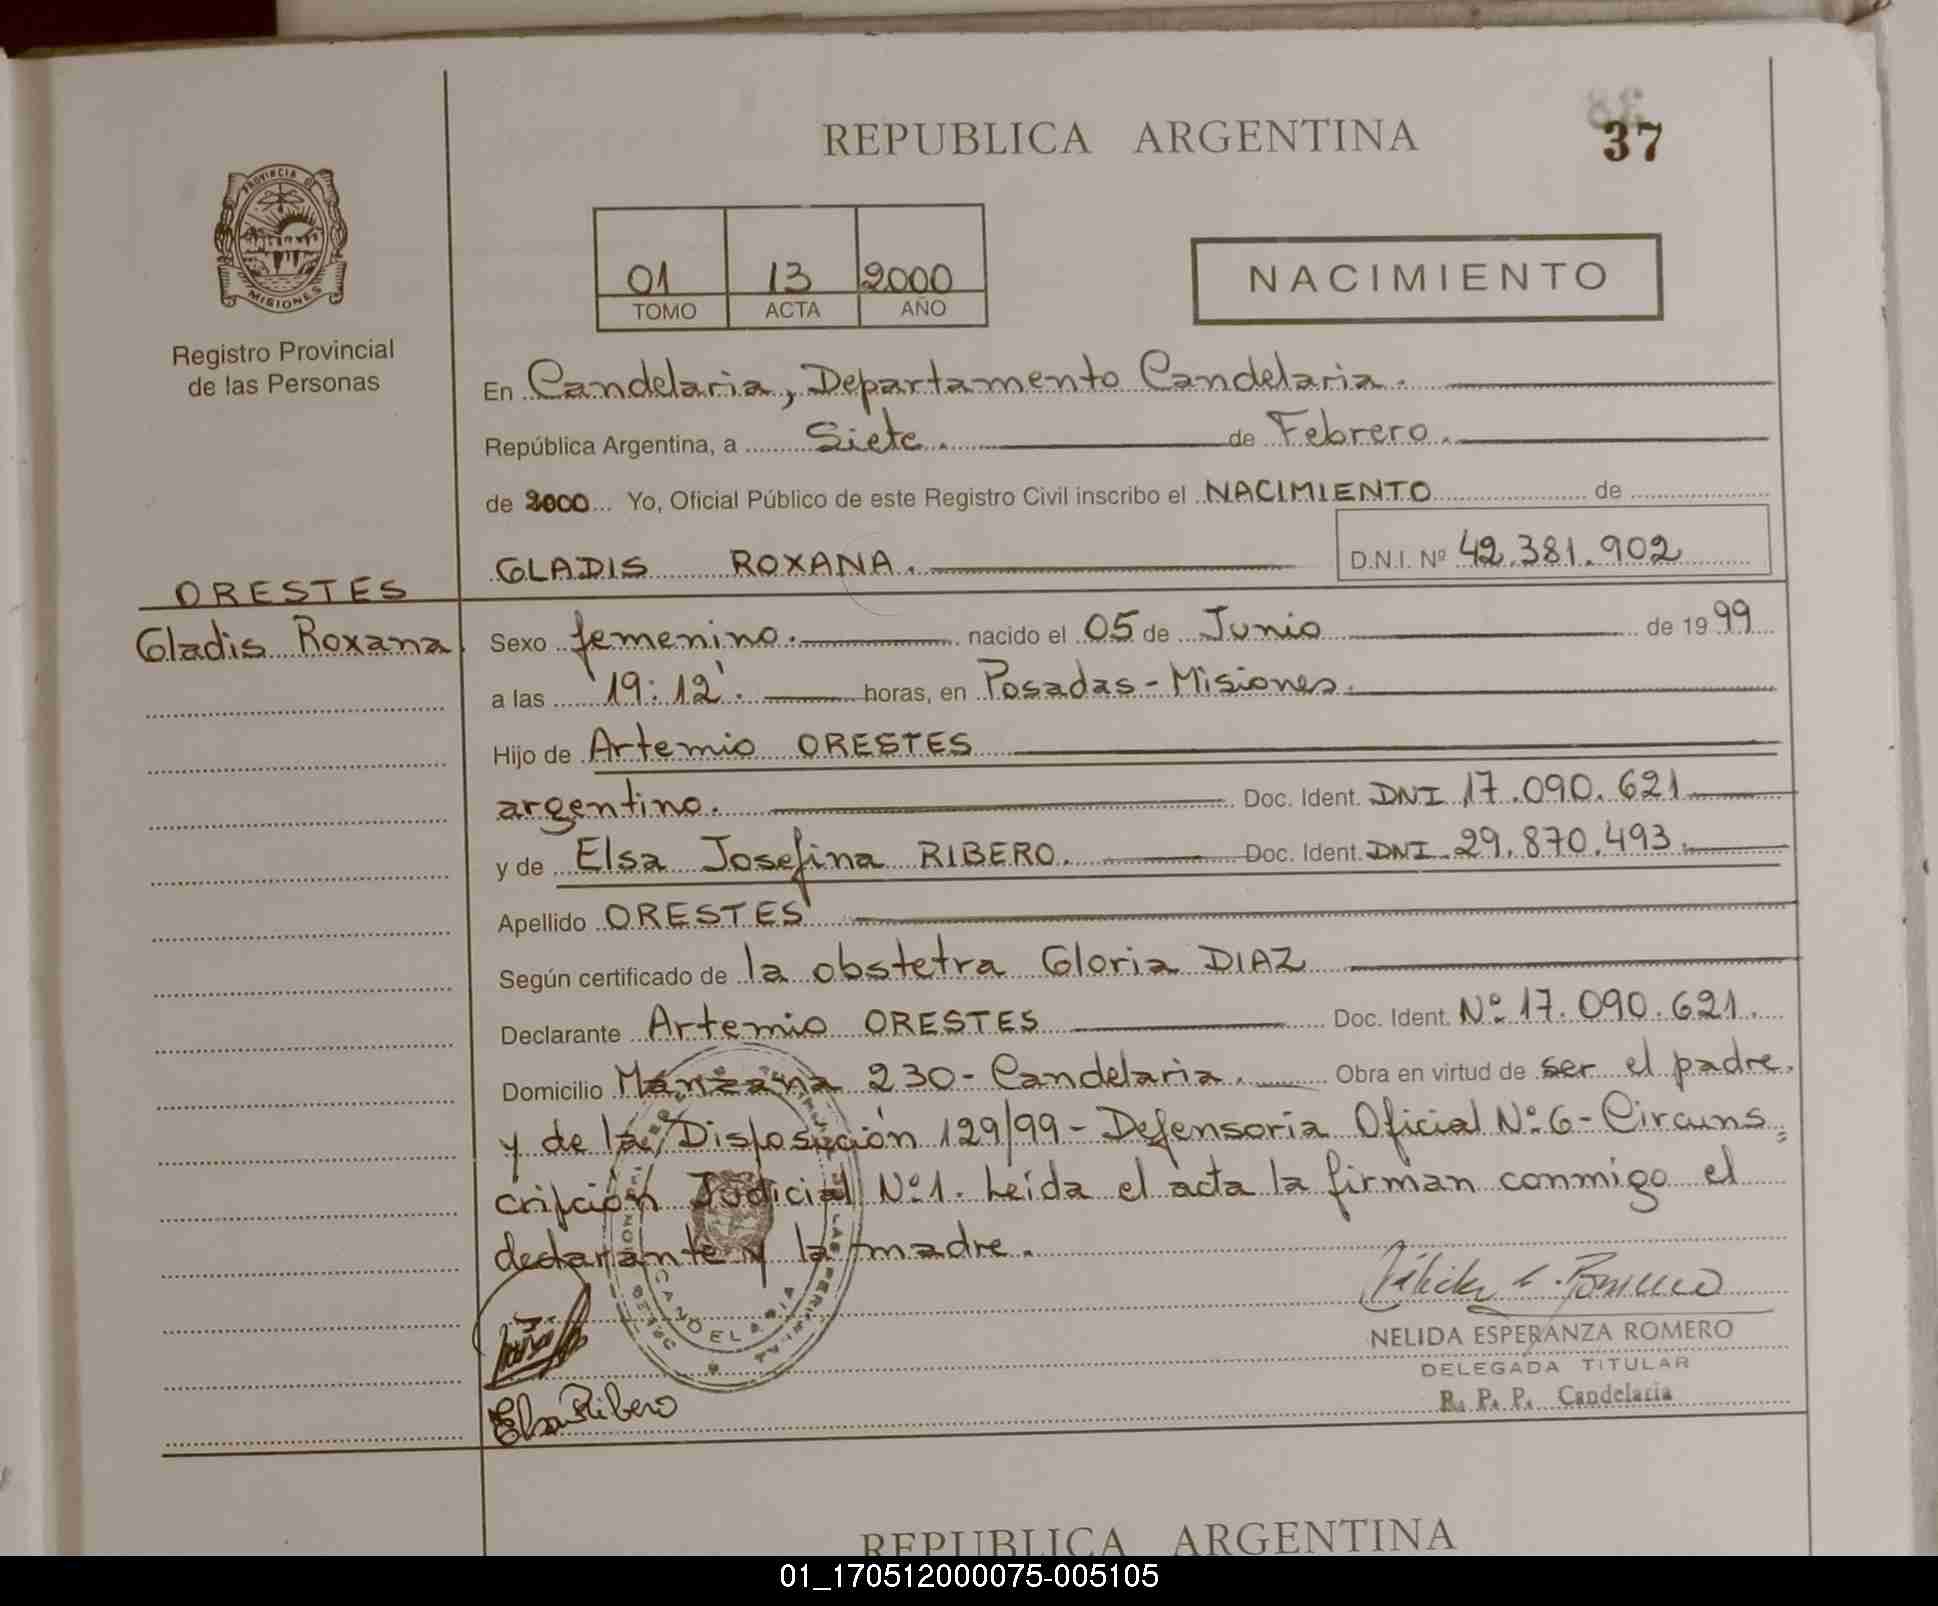 REPUBLICA ARGENTINA
37
PROVINCIA DE
MISIONES
Registro Provincial
de las Personas
01 13 2000
TOMO ACTA AÑO
NACIMIENTO
En Candelaria, Departamento Candelaria.
República Argentina, a Siete. de Febrero.
de 2000 Yo, Oficial Público de este Registro Civil inscribo el NACIMIENTO de
GLADIS ROXANA. D.N.I. Nº 42.381.902
ORESTES
Gladis Roxana
Sexo femenino. nacido el 05 de Junio de 1999
a las 19:12'. horas, en Posadas - Misiones.
Hijo de Artemio ORESTES
argentino. Doc. Ident. DNI 17.090.621
y de Elsa Josefina RIBERO. Doc. Ident. DNI 29.870.493.
Apellido ORESTES
Según certificado de la obstetra Gloria DIAZ
Declarante Artemio ORESTES Doc. Ident. Nº 17.090.621.
Domicilio Manzana 230 - Candelaria. Obra en virtud de ser el padre.
y de la Disposición 129/99 - Defensoria Oficial Nº 6 - Circuns=
cripción Judicial Nº 1. Leída el acta la firman conmigo el
declarante y la madre.
CANDELARIA
NELIDA ESPERANZA ROMERO
DELEGADA TITULAR
R. P. P. Candelaria
Elsa Ribero
REPUBLICA ARGENTINA
01_170512000075-005105